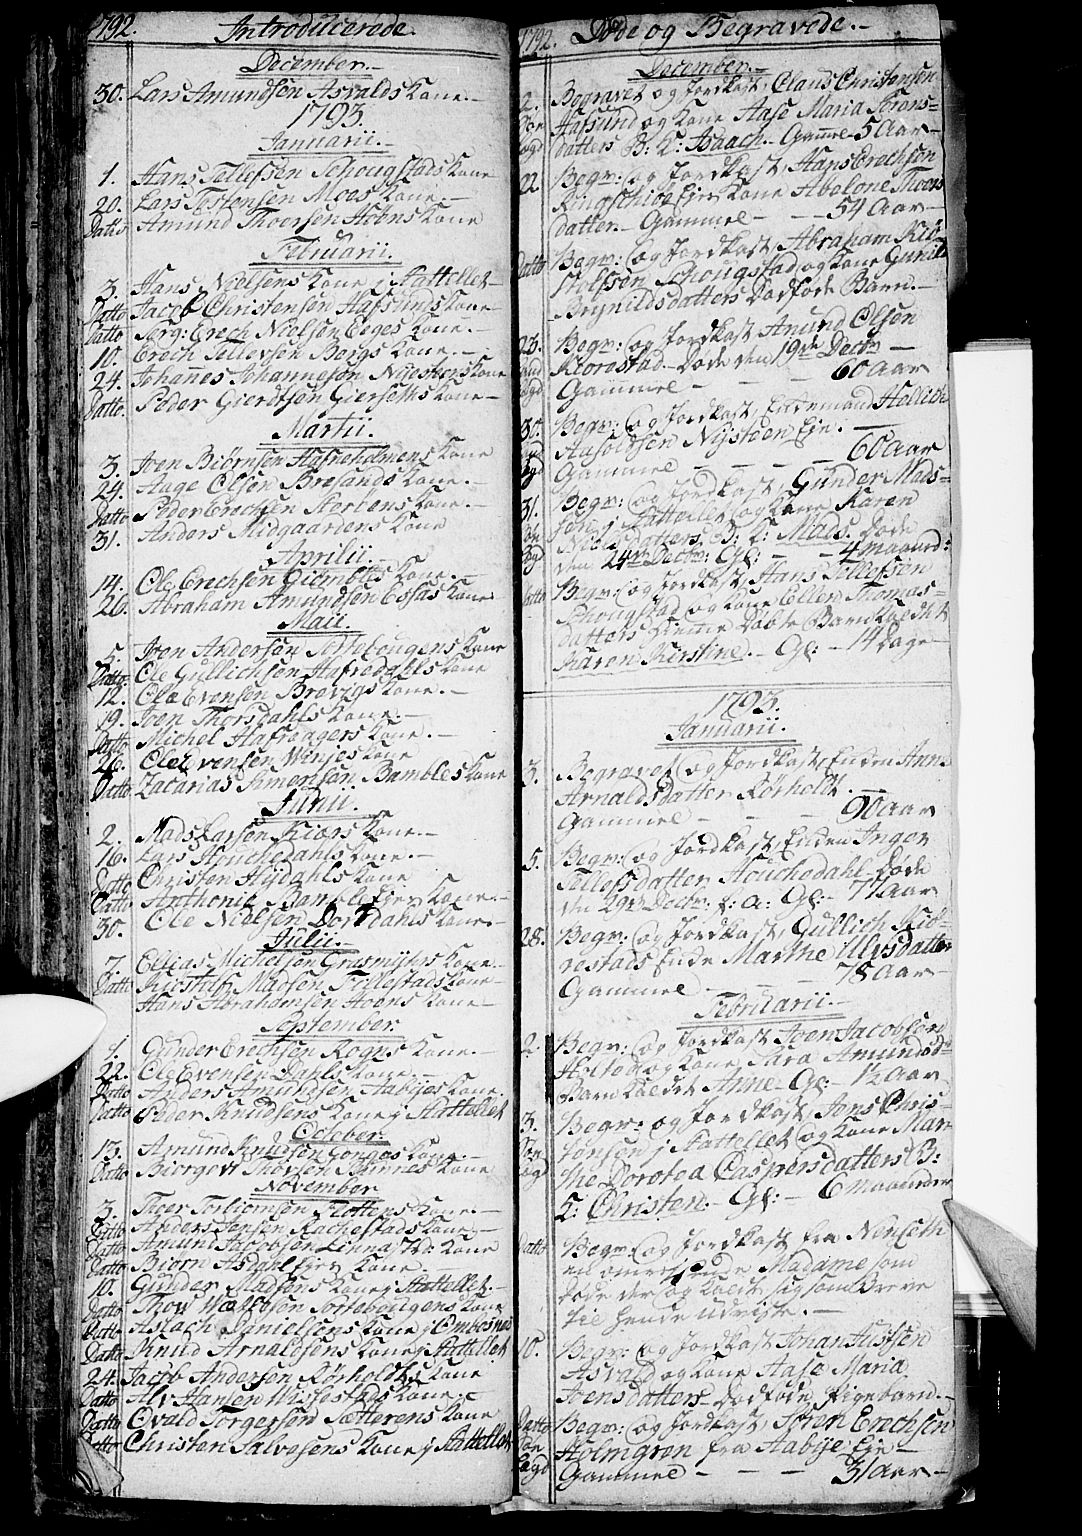 1792. Introducerede.
December.
30. Lars Amundsen Asvalds Kone.
1793.
Januarii.
1. Hans Tellefsen Schougstads Kone
20. Lars Torstensen Moes Kone
Datto Amund Thorsen Hoens Kone
Februarii.
3. Hans Nielsens Kone i Kattellet
Datto Jacob Christensen Hafsunds Kone
Datto Sorg: Erech Nielsen Eeges Kone.
10. Erech Tellevsen Bergs Kone.
24. Johannes Johannesen Nijestuens Kone
Datto. Peder Gierdtsen Gierseths Kone
Martii.
3. Joen Biörnsen Hafneholmens Kone
24. Aage Olsen Bresands Kone.
Datto Peder Erechsen Kone.
31. Anders Midgaardens Kone
Aprilii.
14. Ole Erechsen Kone.
20. Abraham Amundsen Kone
Maii.
5. Joen Andersen Sortebougens Kone
Datto Ole Gullichsen Hafredahls Kone
12. Ole Evensen Brevigs Kone.
19. Joen Thorsdahls Kone.
Datto Michel Hafraagers Kone.
26. Ole Evensen Winjes Kone
Datto Zacarias Simensen Bambles Kone
Junii.
2. Mads Larsen Kiørs Kone.
16. Lars Houchedahls Kone.
Datto Christen Hijdahls Kone
Datto Anthonie Bamble Eje Kone.
30. Ole Nielsen Dorsdahls Kone
Julii.
7. Ellias Michelsen Grasmijhrs Kone.
Datto Kiøstolf Madsen Fillestads Kone
Hans Abrahamsen Hoens Kone
September.
1. Gunder Erechsen Rogns Kone.
22. Ole Evensen Dahls Kone.
Datto Anders Amundsen Aabijes Kone.
Datto Peder Knudsens Kone i Kattellet
October.
13. Amund Knudsen Kone.
Datto Biørgert Thorsen Kone
November
3. Thoer Torbiornsen Flottens Kone.
Datto Anders Jensen Rachestads Kone.
Datto Amund Jacobsen Kone
Datto Biørn Asdahl Eje Kone.
10. Gunder Madsens Kone i Kattellet.
Datto Thov Sortebougens Kone
Datto Aslach Danielsens Kone i
Datto Knud Arnoldsens Kone i Kattellet
24. Jacob Andersen Rørholts Kone
Datto Alv Hansen Wissestads Kone.
Datto Evald Torgersen Sætterens Kone
Datto Christen Salvesens Kone i Kattellet
1792. Døde og Begravede.
December.
2. Begravet og Jordkast, Claus Christensen
Hafsund og Kone Aase Maria
datters B: K: Isaach. Gammel 5 Aar
22 Begr: og Jordkast, Hans Erechsen
Eje Kone Abelone Thoers
datter Gammel 54 Aar
Datto Begr: og Jordkast, Abraham
Schougstad og Kone Gunild
Brynildsdatters Dødføde Barn.
23. Begr: og Jordkast Anund Olsen
Kiørestad Døde den 19de Decbr
Gammel 60 Aar
30. Begr: og Jordkast, Endemand
Aasoldsen Nijstøen Eje.
Gammel 60 Aar
31. Begr: og Jordkast, Gunder Mads=
sen i Kattellet og Kone Karen
Nielsdatters B: K: Mads. Døde
den 24de Decbr: Gl: 4 maaned:
Datto Begr: og Jordkast, Hans Tellefsen
Schougstad og Kone Ellen Thomas=
datters Hiemme Døbte Barn Kaldet
Karen Kierstine. Gl: 14 Dage
1793.
Januarii.
3. Begravet og Jordkast, Enden Anne
Arnoldsdatter Rørholt.
Gammel 90 Aar
5. Begr: og Jordkast, Enden Inger
Tellefsdatter Houchedahl Døde
den 29de Decbr: f: a: Gl: 71 Aar
28. Begr: og Jordkast, Gullich
Ende Marthe Ulvsdatter
Gammel 78 Aar
Februarii.
2. Begr: og Jordkast Joen Jacobsen
og Kone Sara Amundsd=
Barn Kaldet Anne Gl: 1½ Aar
3. Begr: og Jordkast, Jens Chris=
tensen i Kattellet og Kone Mar=
the Dorotea Caspersdatters B:
K: Christen. Gl: 6 maaneder
Datto Begr: og Jordkast fra Nenseth
en omreisende Madame som
døde der og Kaldt sig som Breve
til hende udviste.
10. Begr: og Jordkast, Johan
Asvald og Kone Aase Maria
Joensdatters Dødføde Pigebarn.
Datto Begr: og Jordkast, Søren Erechsen
Holmgren fra Aabije Eje
Gammel 31 Aar